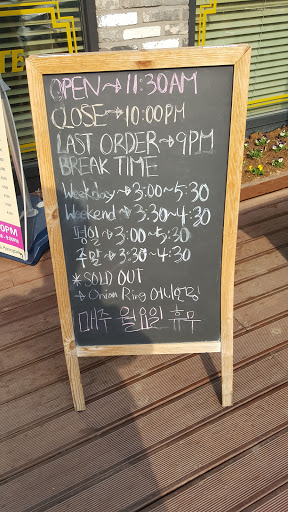 OPEN → 11:30AM
CLOSE → 10:00PM
LAST ORDER → 9PM
BREAK TIME
Weekday → 3:00~5:30
Weekend → 3:30~4:30
평일 → 3:00~5:30
주말 → 3:30~4:30
*SOLD OUT
→ Onion Ring 어니언링
매주 월요일 휴무